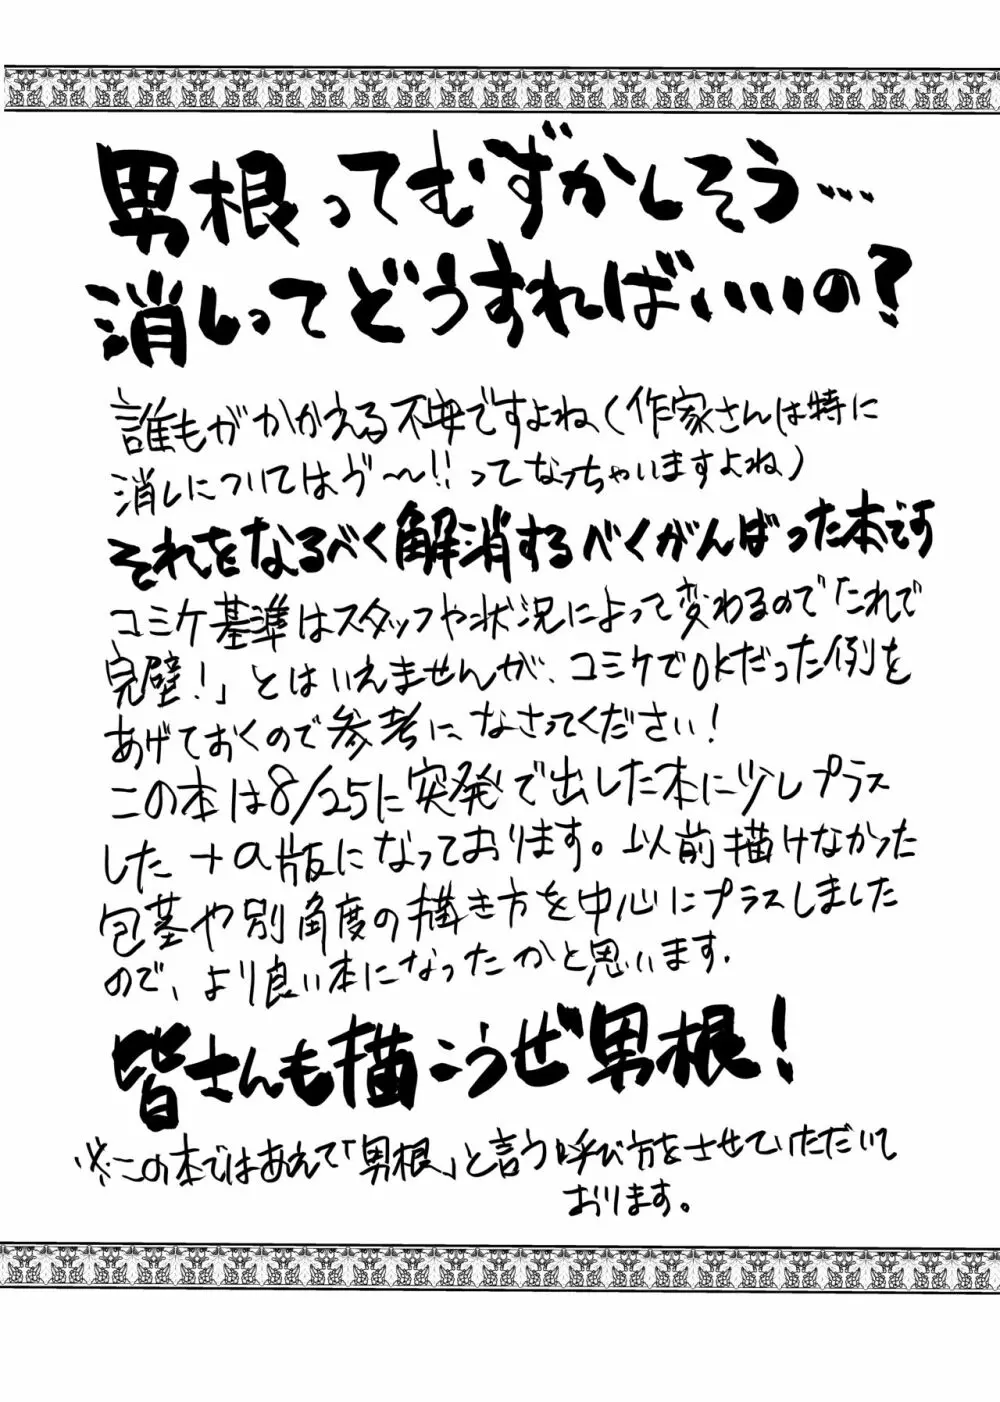 男根ってむずかしそう…
消しってどうすればいいの?
誰もがかかえる不安ですよね(作家さんは特に
消しについてはヴ〜!!ってなっちゃいますよね)
それをなるべく解消するべくがんばった本です
コミケ基準はスタッフや状況によって変わるので「たれで
完璧!」とはいえませんが、コミケでOKだった例を
あげておくので参考になさってください!
この本は8/25に突発で出した本に少しプラス
した+α版になっております。以前描けなかった
包茎や別角度の描き方を中心にプラスしました
ので、より良い本になったかと思います.
皆さんも描こうぜ男根!
※この本ではあえて「男根」と言う呼び方をさせていただいて
おります。